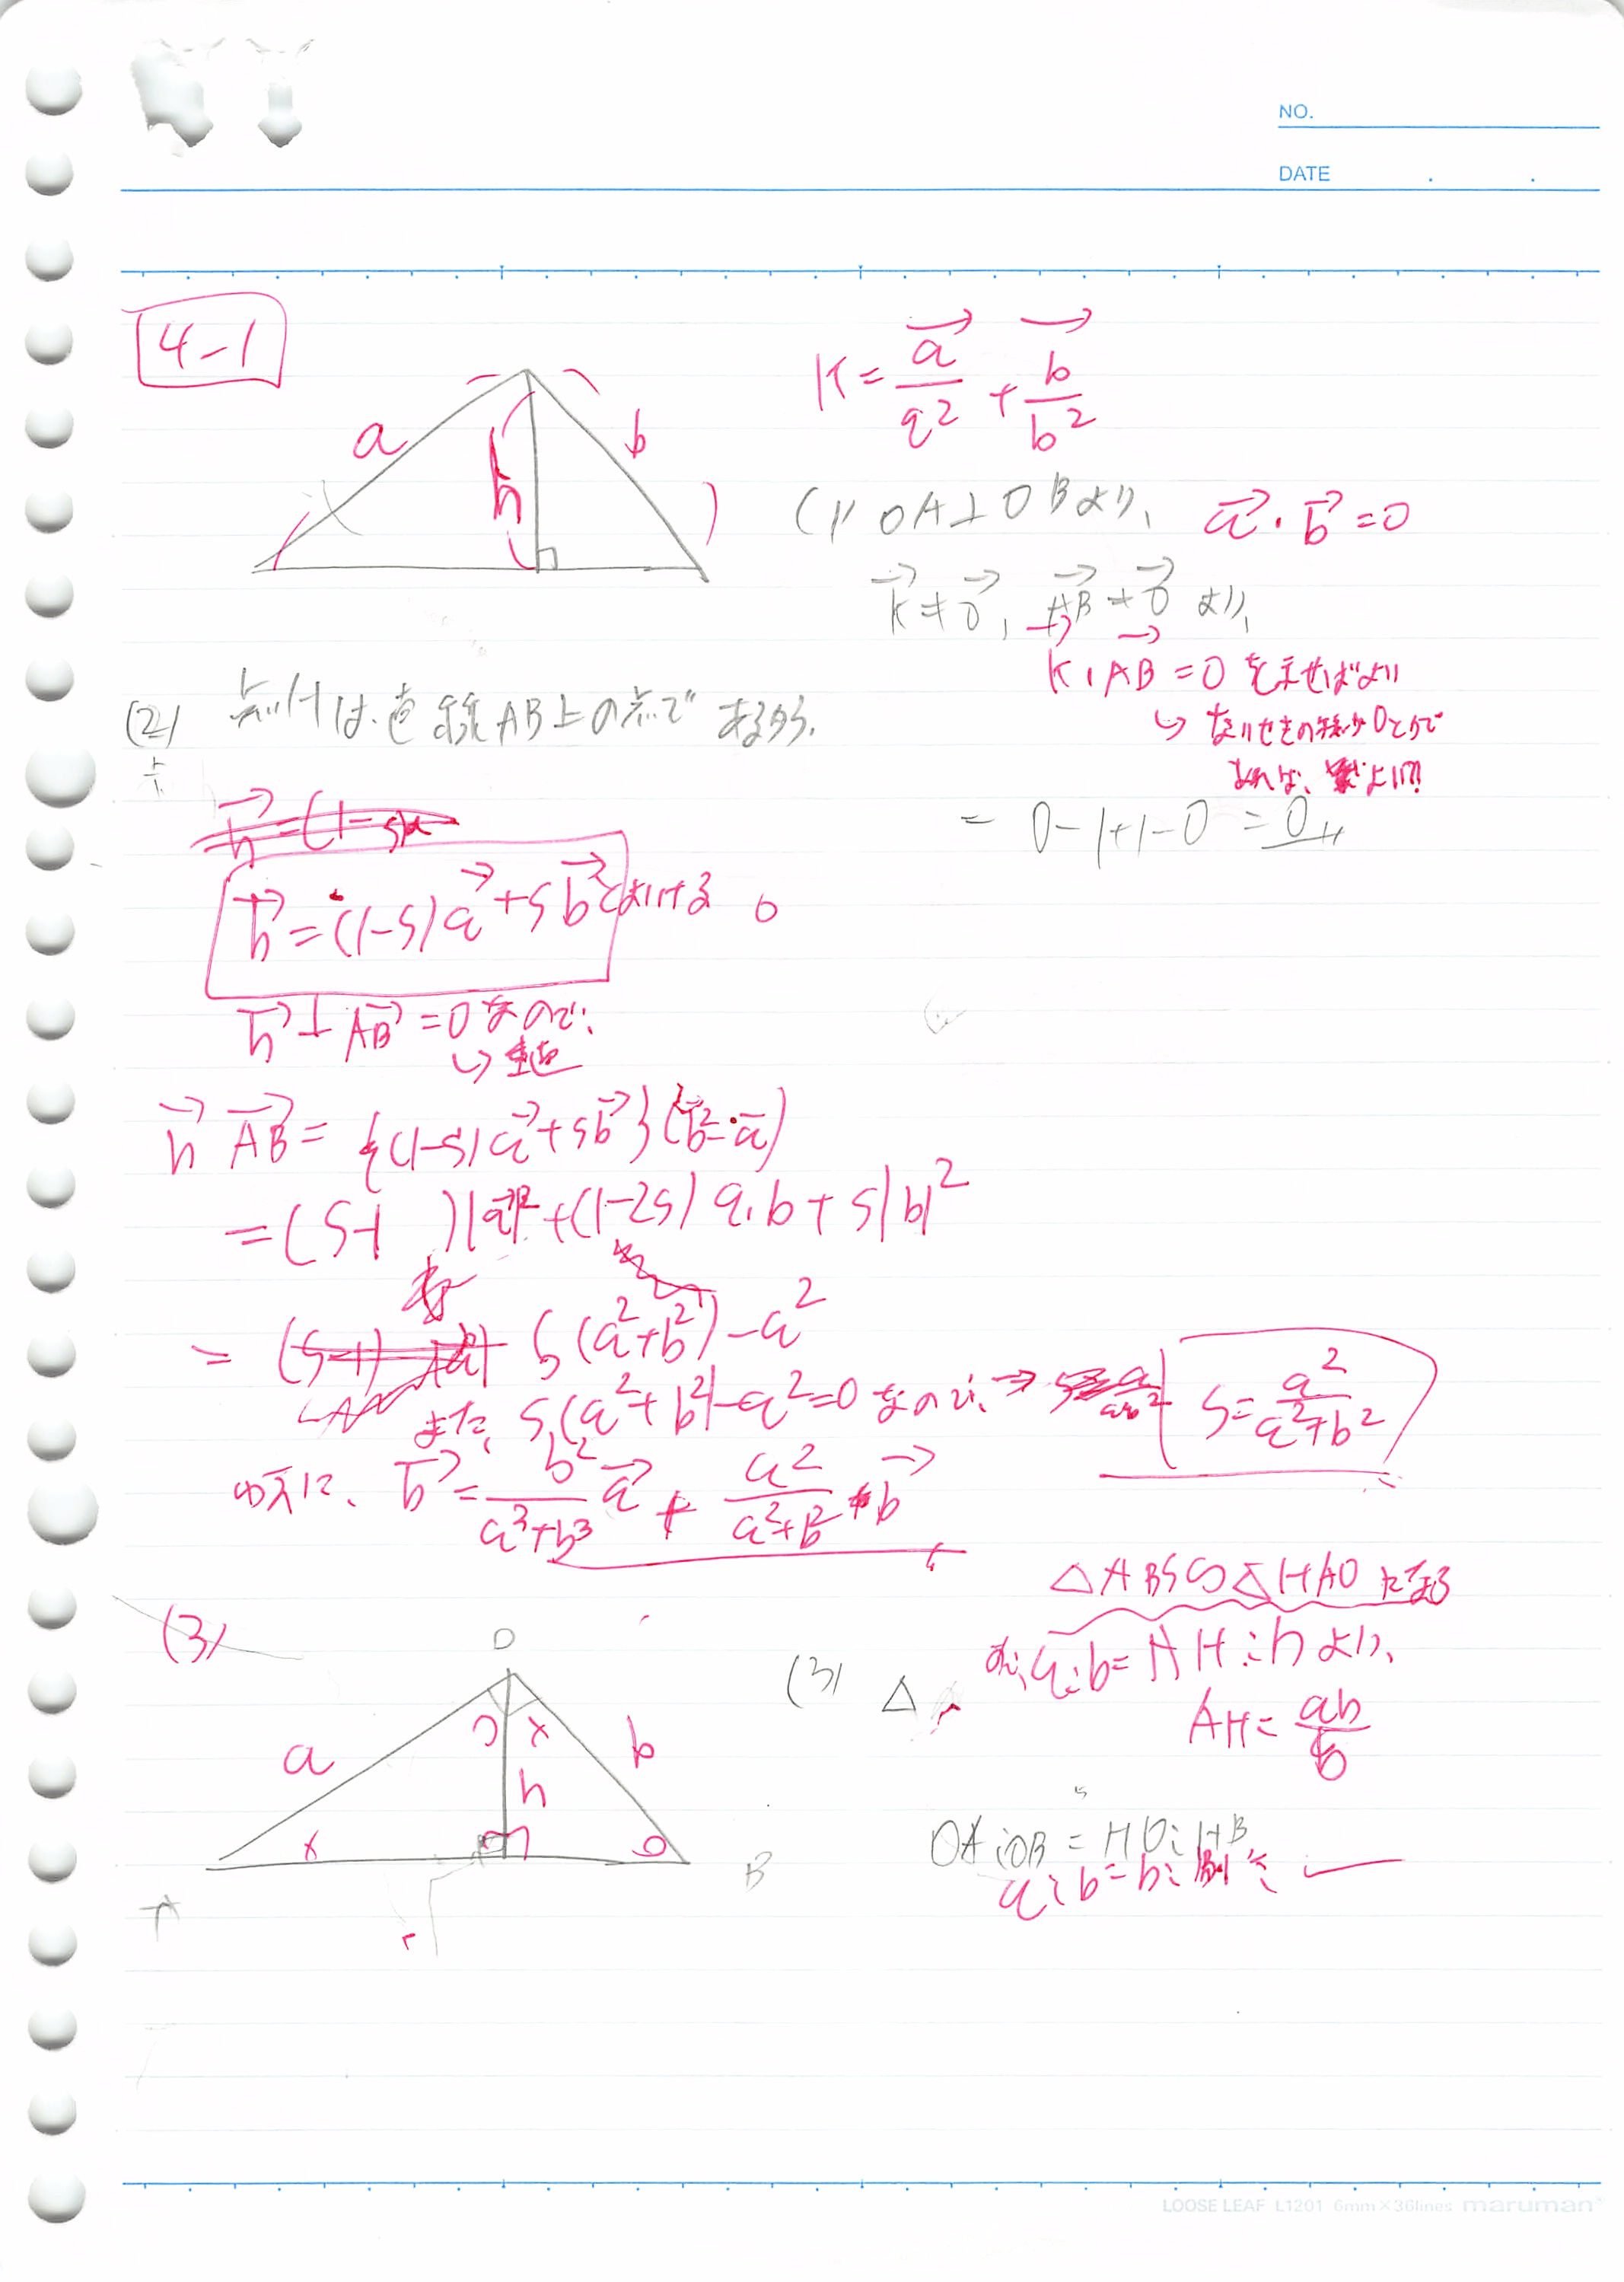 NO.
DATE
4-1
a
h
b
K = a→/a² + b→/b²
(1) OA⊥OBより、 a→・b→=0
k→≠0→、AB→≠0→より、
k→・AB→=0を示せばよい
↳
= 0-1+1-0 = 0〃
(2) 点Hは、直線AB上の点であるから、
h→=(1-s)a
h→=(1-s)a→+sb→とおける。
h→⊥AB→=0なので、
↳垂直
h→ AB→= {(1-s)a→+sb→}(b→-a→)
=(s-1 )|a→|²+(1-2s) a・b+s|b|²
= (s-1) |a| s(a²+b²)-a²
また、s(a²+b²)-a²=0なので、→ s=a²/(a²+b²)
ゆえに、h→= b²/(a³+b³) a→ + a²/(a²+b²) b→
(3)
O
a
b
h
×
×
B
A
(3) △
△ABS∽△HAO になる
a:b=AH:hより、
AH= ah/b
OA:OB = HO:HB
a:b=h:
LOOSE LEAF L1201 6mm×36lines maruman